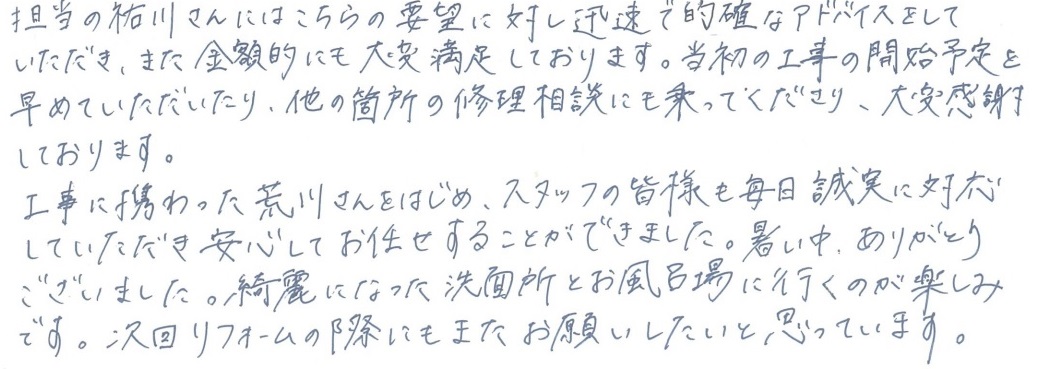 担当の祐川さんにはこちらの要望に対し迅速で的確なアドバイスをして
いただき、また金額的にも大変満足しております。当初の工事の開始予定を
早めていただいたり、他の箇所の修理相談にも乗ってくださり、大変感謝
しております。
工事に携わった荒川さんをはじめ、スタッフの皆様も毎日誠実に対応
していただき安心してお任せすることができました。暑い中、ありがとう
ございました。綺麗になった洗面所とお風呂場に行くのが楽しみ
です。次回リフォームの際にもまたお願いしたいと思っています。